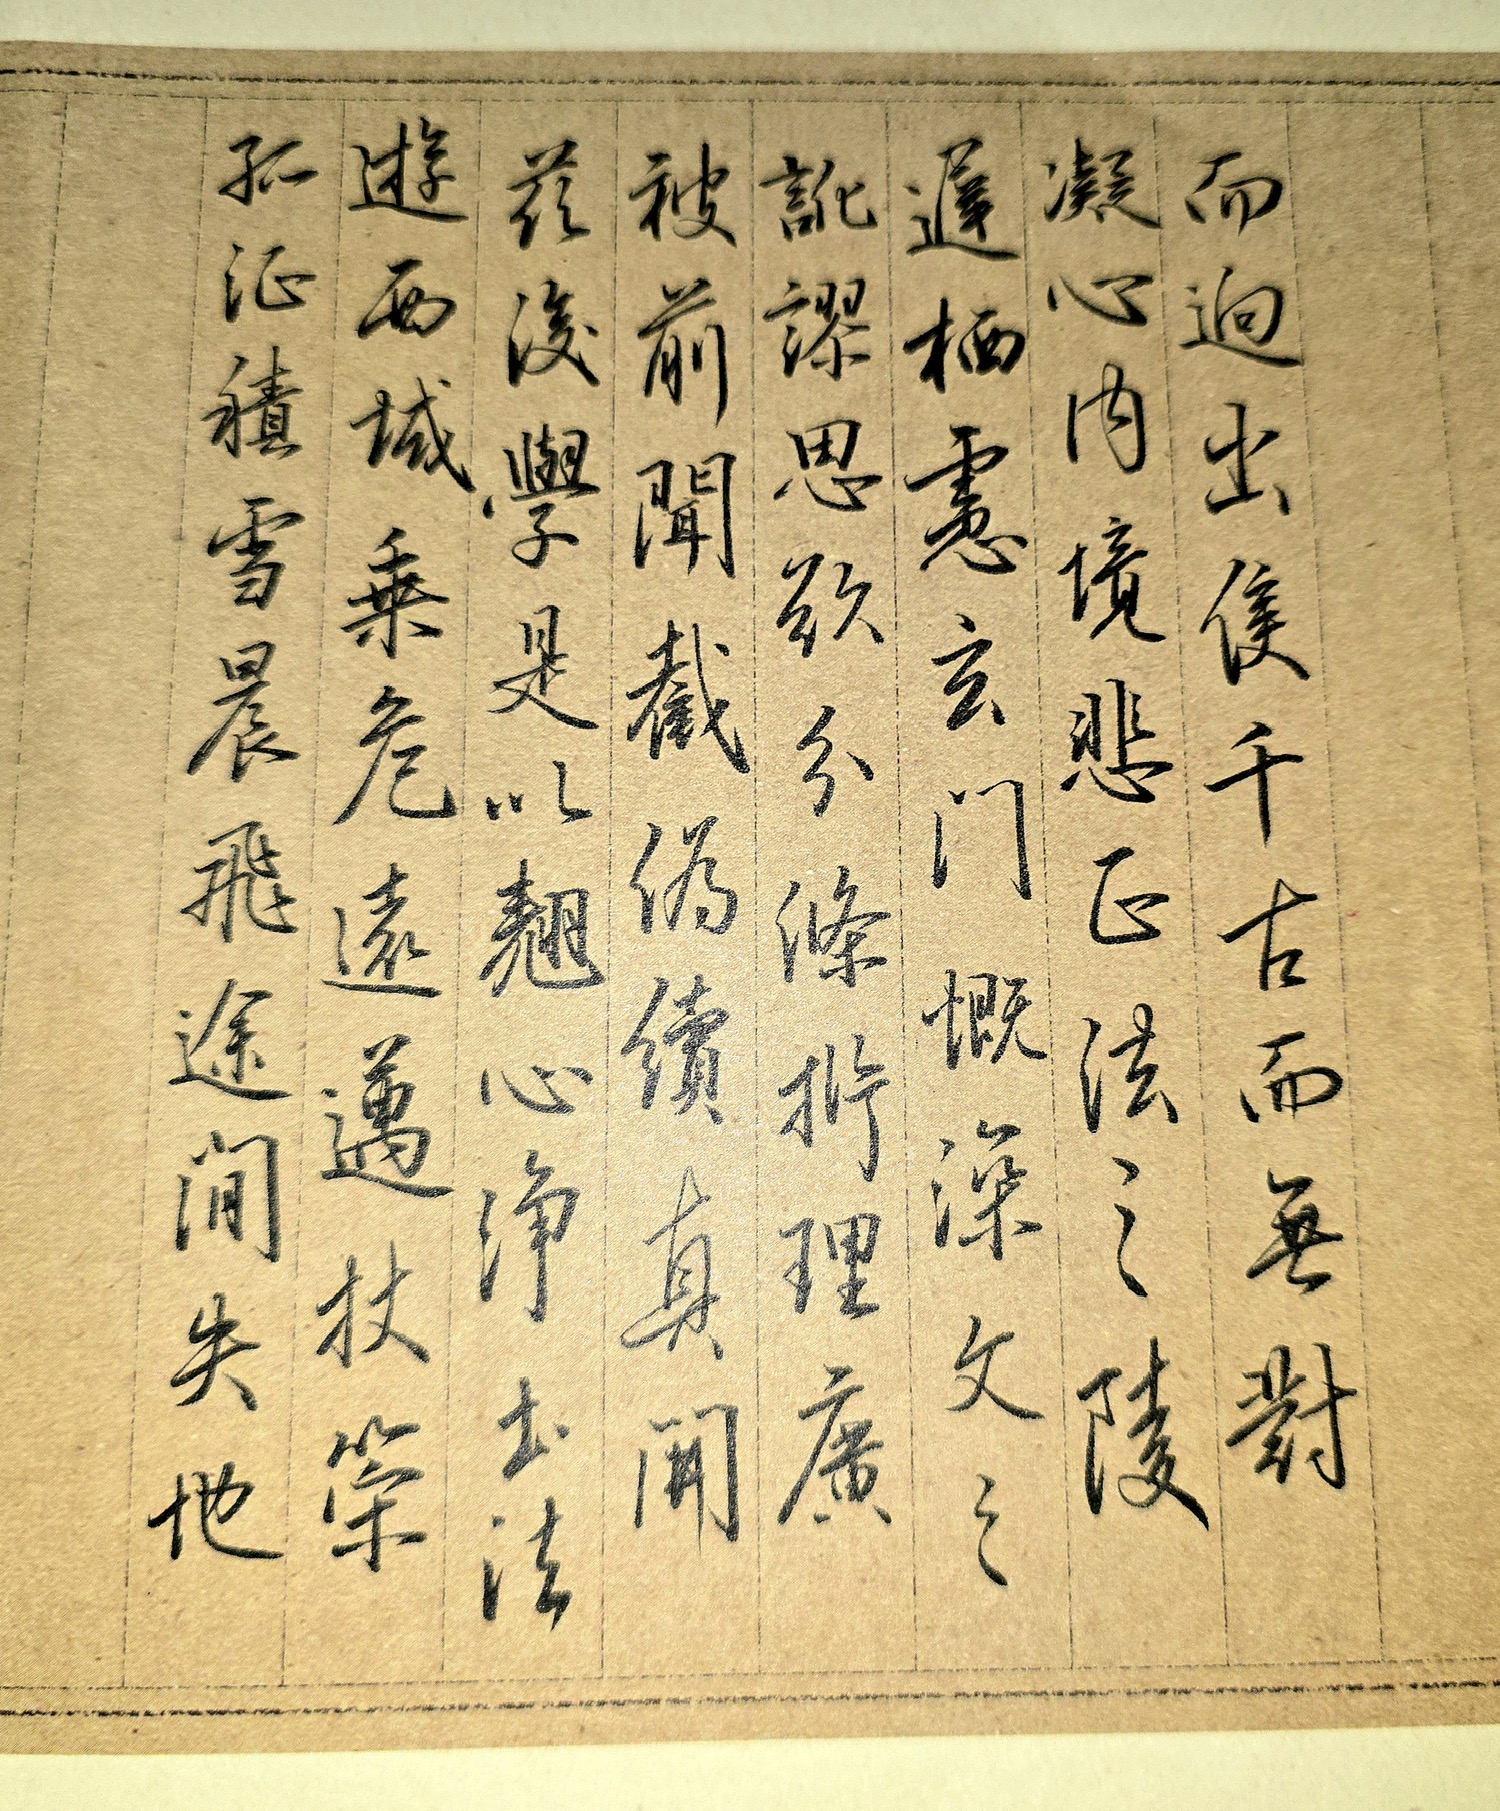 而逈出侯千古而無對
凝心内境悲正法之陵
遲栖慮玄門慨深文之
訛謬思欲分條析理廣
被前聞截僞續真開
兹後學是以翹心淨土法
遊西域乗危遠邁杖策
孤征積雪晨飛途間失地